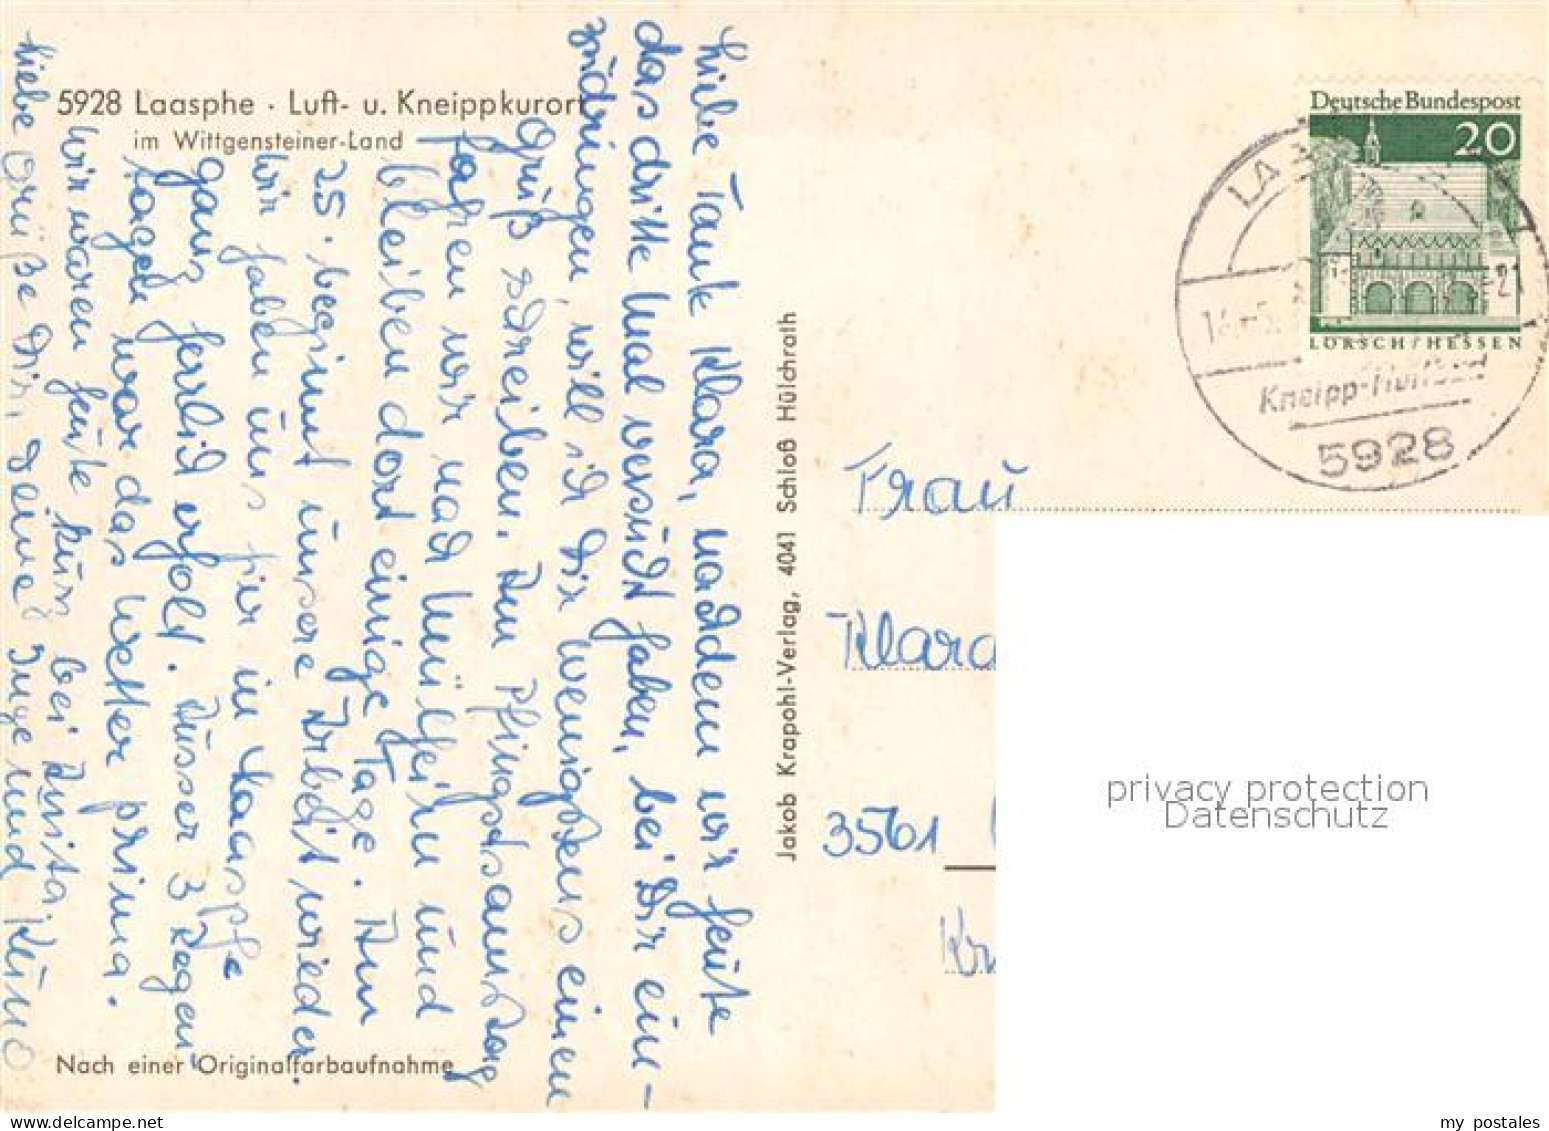 5928 Laasphe · Luft- u. Kneippkurort
im Wittgensteiner-Land
Liebe Tante Klara, nachdem wir heute
das dritte Mal versucht haben, bei Dir ein-
zudringen, will ich Dir wenigstens einen
Gruß schreiben. Am Pfingstsamstag
fahren wir nach Mülheim und
bleiben dort einige Tage. Am
25. beginnt unsere Arbeit wieder.
Wir haben uns hier in Laasphe
ganz herrlich erholt. Ausser 3 Regen-
tagen war das Wetter prima.
Wir waren heute kurz bei Anita.
Liebe Grüße Dir, Deine Inge und Kuno
Nach einer Originalfarbaufnahme
Jakob Krapohl-Verlag, 4041 Schloß Hülchrath
Deutsche Bundespost
20
LORSCH / HESSEN
LAA
21
Kneipp-
5928
Frau
Klara
3561
privacy protection
Datenschutz
my postales